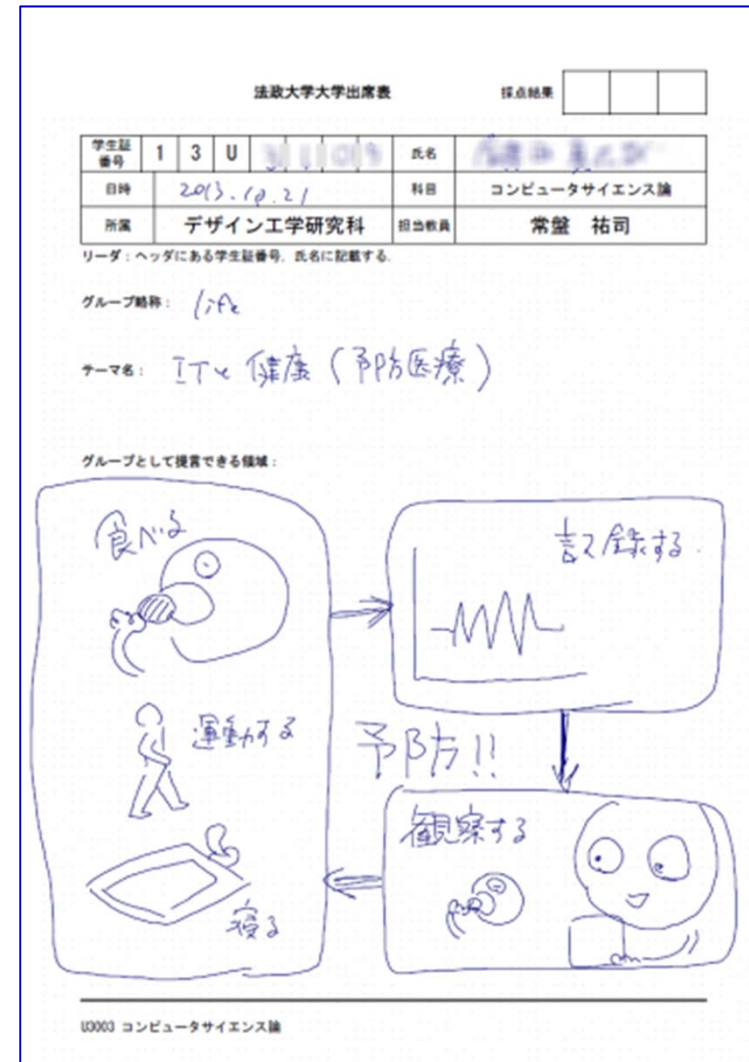 法政大学大学出席表 採点結果
学生証番号 1 3 U 氏名
日時 2013.10.21 科目 コンピュータサイエンス論
所属 デザイン工学研究科 担当教員 常盤 祐司
リーダ:ヘッダにある学生証番号, 氏名に記載する.
グループ略称: life
テーマ名: ITと健康(予防医療)
グループとして提言できる領域:
食べる
記録する.
運動する
予防!!
観察する
寝る
U3003 コンピュータサイエンス論